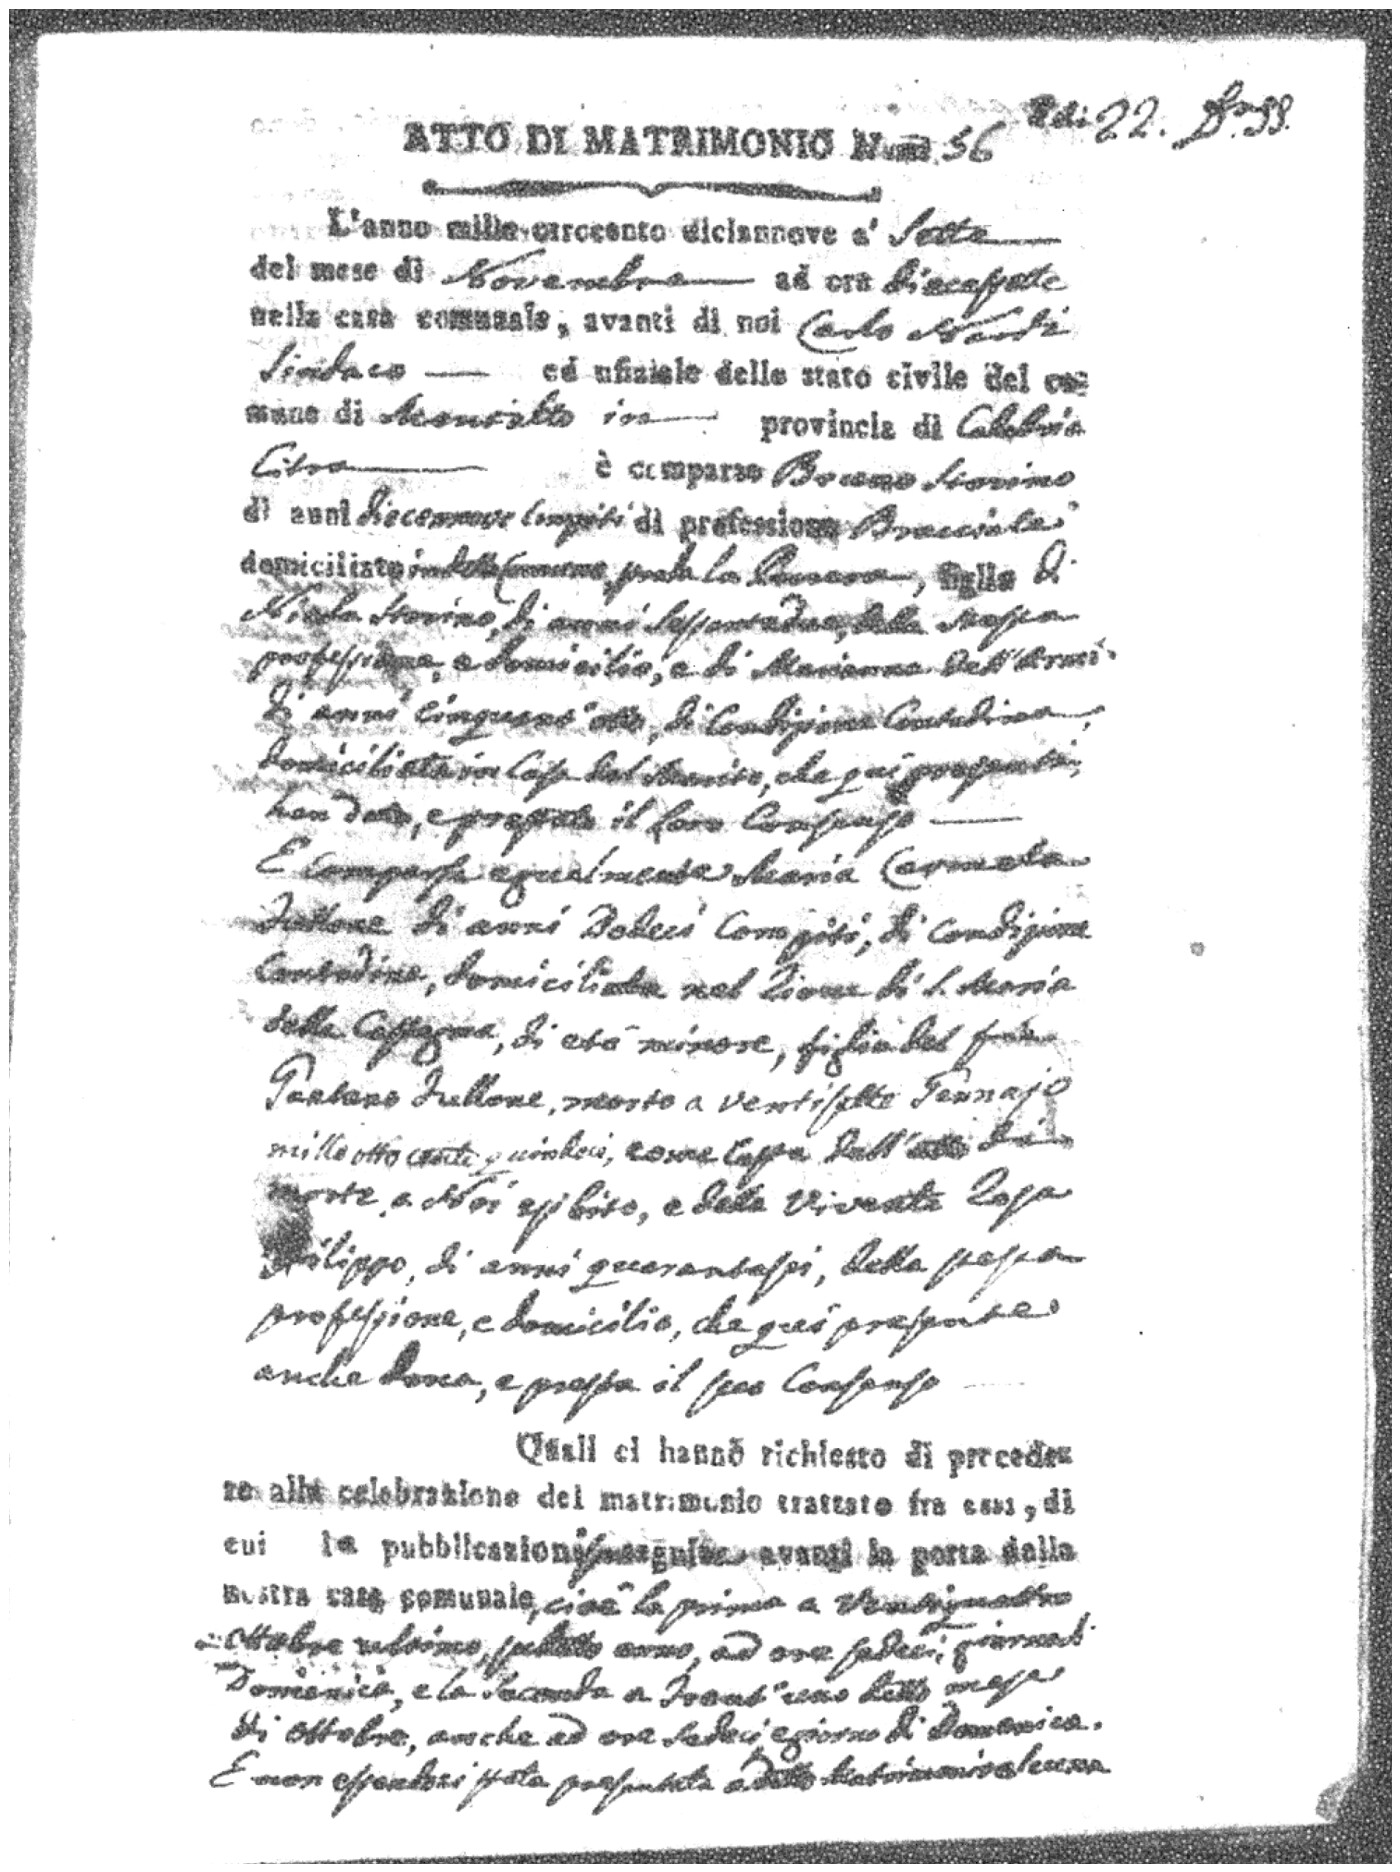 Adi 22. D. SS.
ATTO DI MATRIMONIO Num. 56
L'anno mille ottocento diciannove a' Sette
del mese di Novembre ad ore diecessette
nella casa comunale, avanti di noi Carlo Nardi
Sindaco ed ufiziale dello stato civile del co-
mune di Montalto in provincia di Calabria
Citra è comparso Bruno Storino
di anni diecennove compiti di professione Bracciale
domiciliato in detto Comune, figlio di
Nicola Storino, di anni sessantadue, della stessa
professione, e domicilio, e di Marianna Dell'Armi
di anni cinquant'otto, di condizione Contadina,
domiciliata in Casa del Marito, che qui presenti,
han dato, e prestato il loro Consenso
E comparsa egualmente Maria Carmela
Tullone di anni Dodeci Compiti, di condizione
Contadina, domiciliata nel Rione di S. Maria
della Castagna, di età minore, figlia del fù
Gaetano Tullone, morto a ventisette Gennajo
mille otto cento quindeci, come costa dall'atto di
morte a Noi esibito, e della vivente Rosa
Filippo, di anni quarantasei, della stessa
professione, e domicilio, che qui presente
anche dona, e presta il suo Consenso
Quali ci hanno richiesto di procede-
re alla celebrazione del matrimonio trattato fra essi, di
cui le pubblicazioni avanti la porta della
nostra casa comunale, cioè la prima a Ventiquattro
Ottobre ultimo, suddetto anno, ad ore sedeci, giorno di
Domenica, e la seconda a Trent'uno detto mese
di Ottobre, anche ad ore sedeci, e giorno di Domenica.
E non essendosi stata presentata a detto Matrimonio alcuna